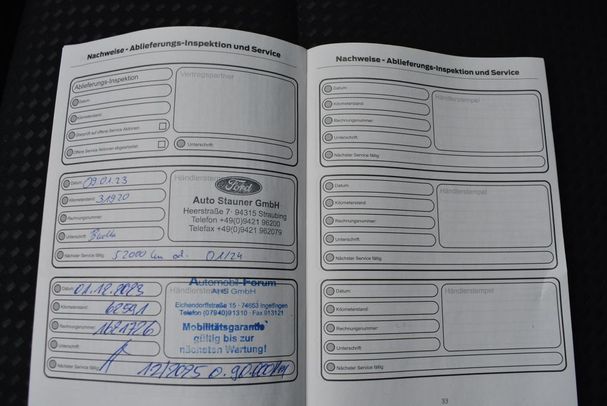 Nachweise - Ablieferungs-Inspektion und Service
Ablieferungs-Inspektion
Vertragspartner
Datum
Kilometerstand
Geprüft auf offene Service Aktionen
Offene Service Aktionen abgearbeitet
Unterschrift
Datum: 09.01.23
Händlerstempel
Ford
Kilometerstand: 31920
Auto Stauner GmbH
Heerstraße 7 · 94315 Straubing
Rechnungsnummer:
Telefon +49(0)9421 96200
Telefax +49(0)9421 962079
Unterschrift:
Nächster Service fällig: 52000 km od. 01/24
Datum: 01.12.2023
Händlerstempel
Automobil-Forum
AHS GmbH
Kilometerstand: 62591
Eichendorffstraße 15 · 74653 Ingelfingen
Telefon (07940)91310 · Fax 913121
Rechnungsnummer: 1681726
Mobilitätsgarantie
gültig bis zur
nächsten Wartung!
Unterschrift:
Nächster Service fällig: 12/2025 o. 90.000 km
Nachweise - Ablieferungs-Inspektion und Service
Datum:
Händlerstempel
Kilometerstand:
Rechnungsnummer:
Unterschrift:
Nächster Service fällig:
Datum:
Händlerstempel
Kilometerstand:
Rechnungsnummer:
Unterschrift:
Nächster Service fällig:
Datum:
Händlerstempel
Kilometerstand:
Rechnungsnummer:
Unterschrift:
Nächster Service fällig:
33